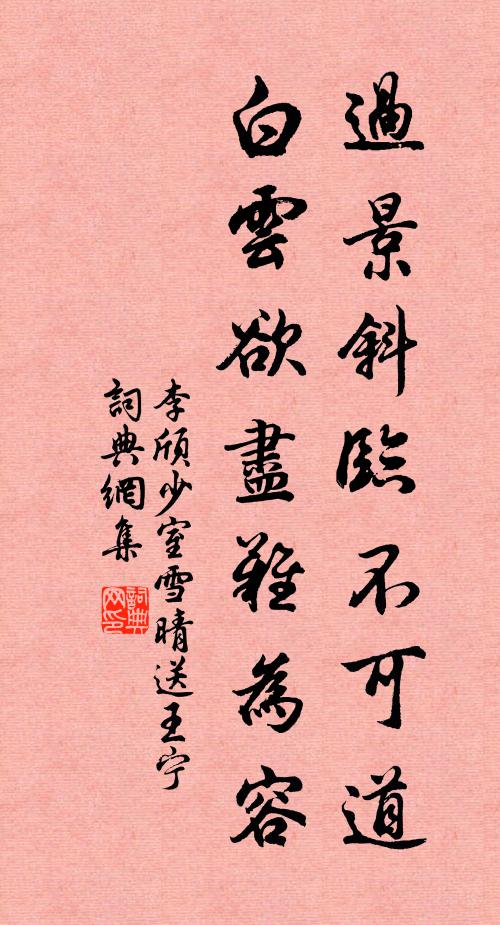 過景斜臨不可道
白雲欲盡難為容
李頎少室雪晴送王宁
詞典網集
詞典
网印